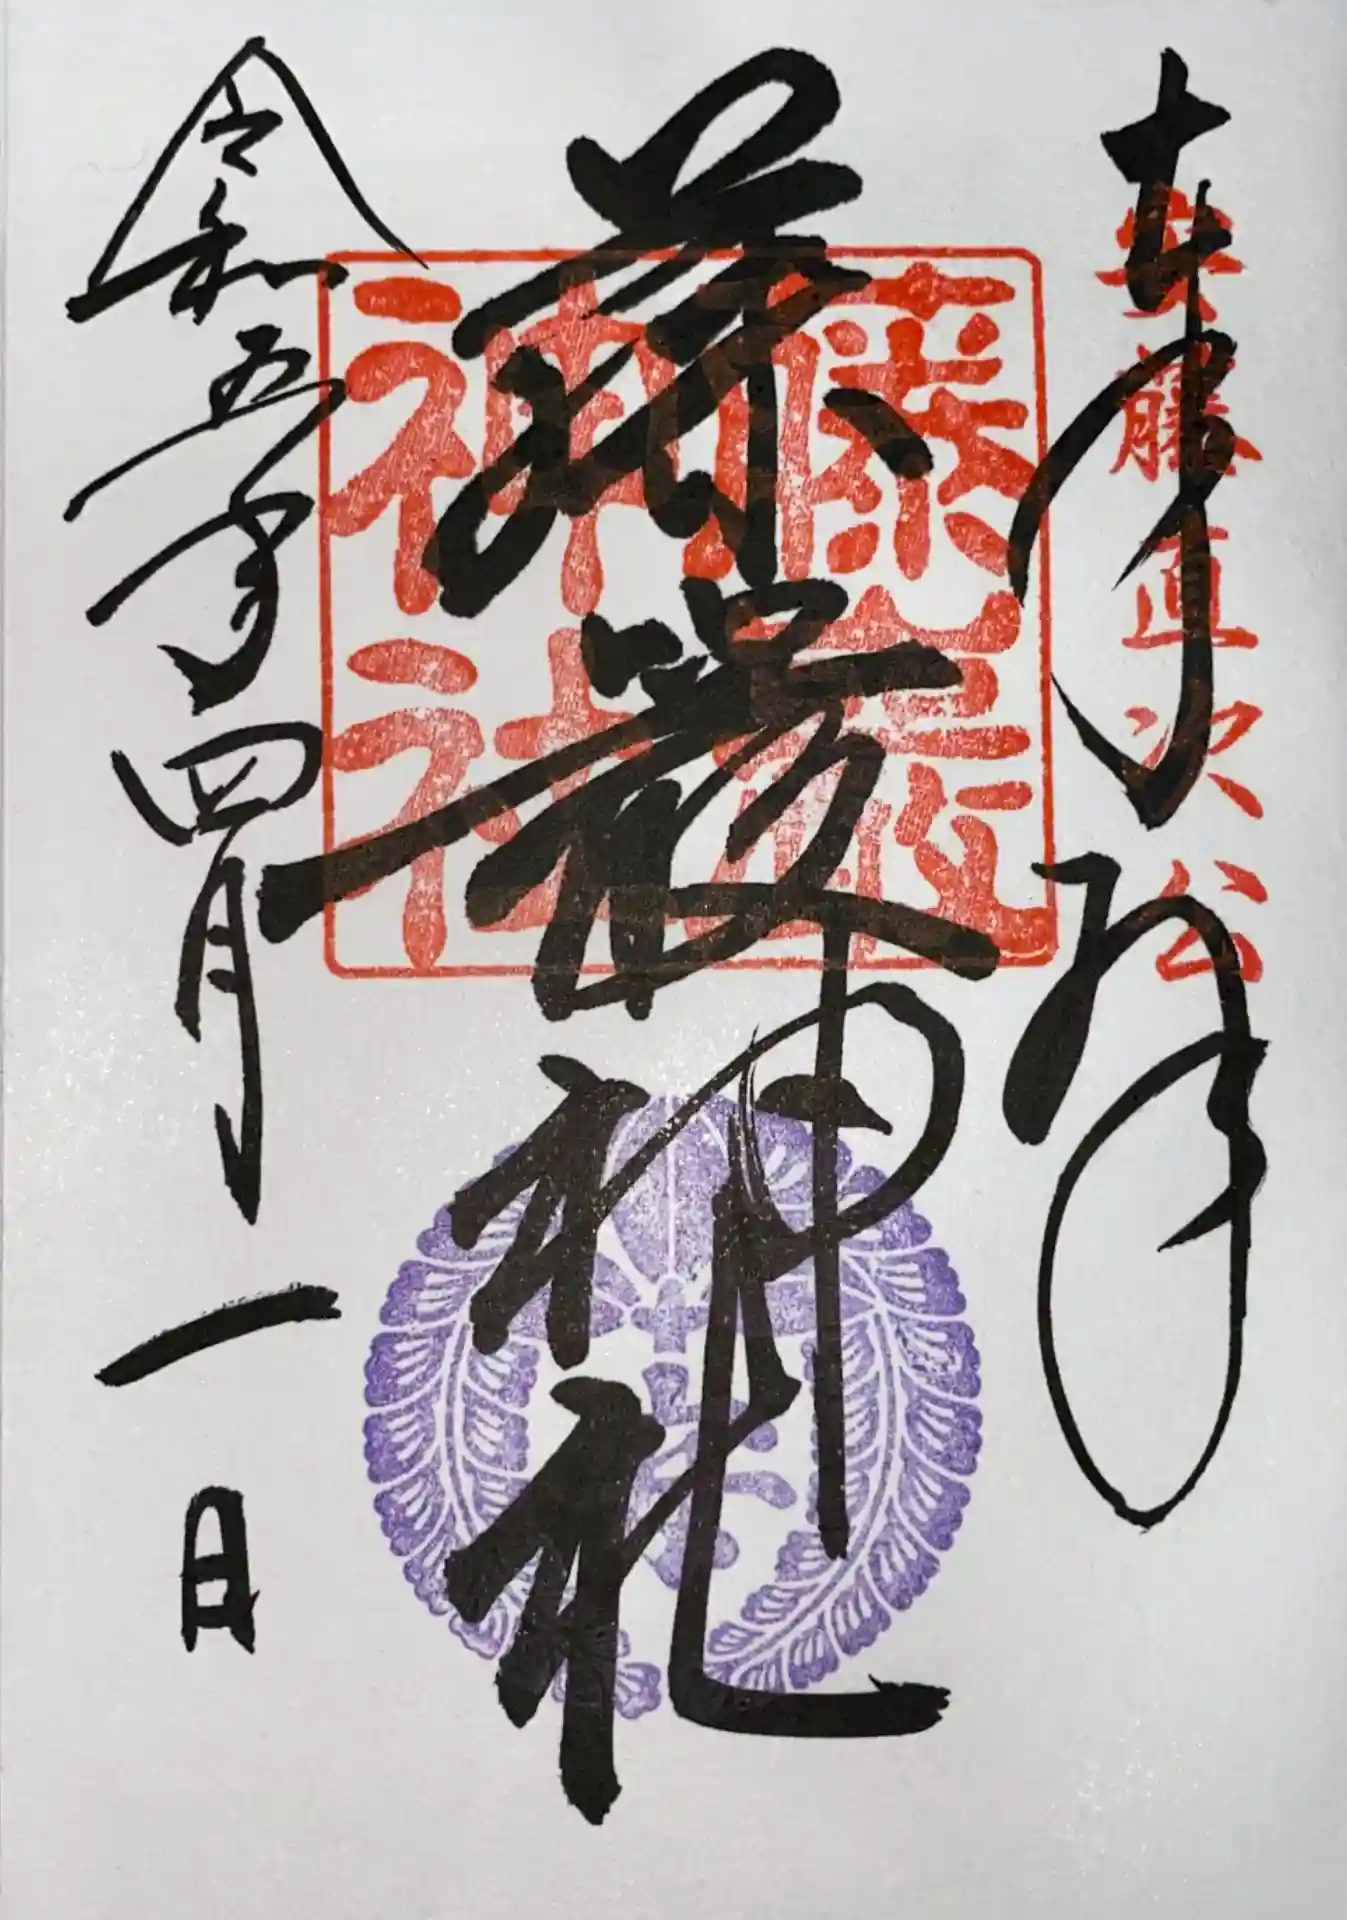 奉拝
安藤直次公
藤巌神社
藤巌神社
令和五年四月一日